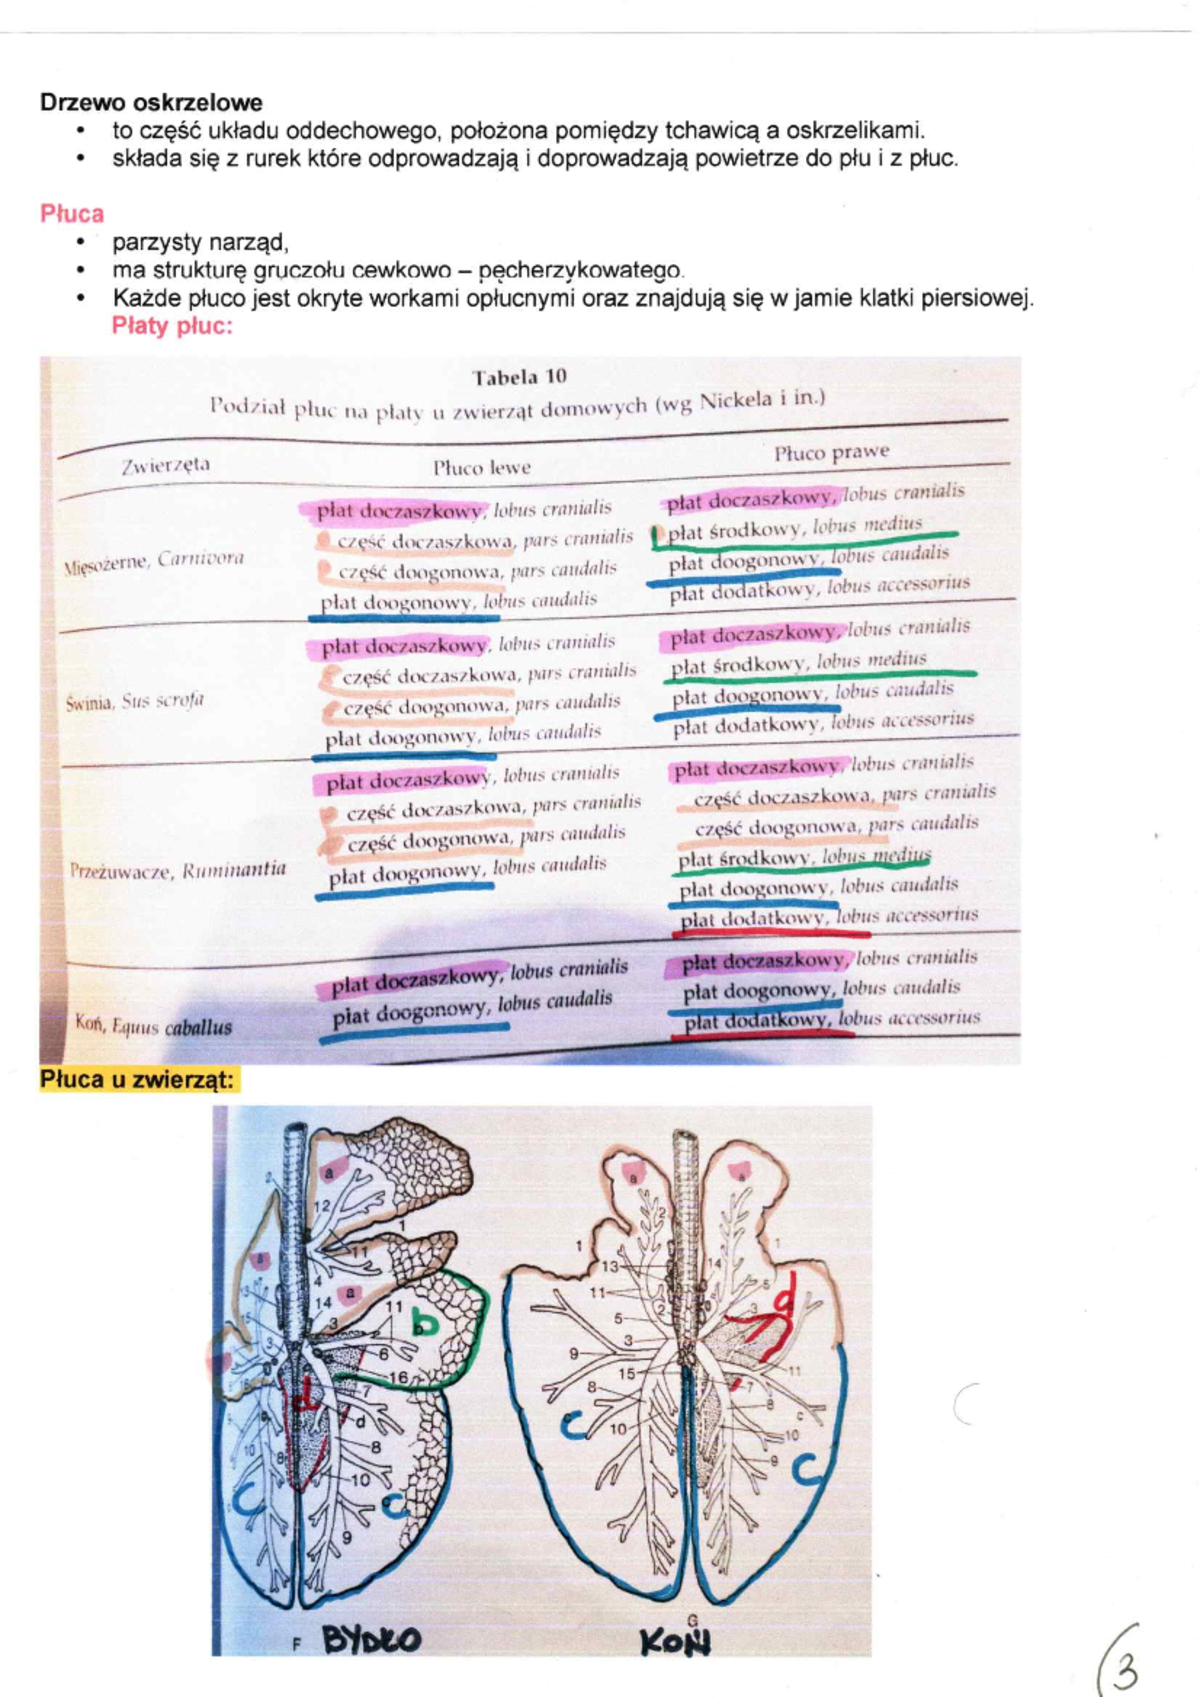 Drzewo oskrzelowe
• to część układu oddechowego, położona pomiędzy tchawicą a oskrzelikami.
• składa się z rurek które odprowadzają i doprowadzają powietrze do płu i z płuc.
Płuca
• parzysty narząd,
• ma strukturę gruczołu cewkowo – pęcherzykowatego.
• Każde płuco jest okryte workami opłucnymi oraz znajdują się w jamie klatki piersiowej.
Płaty płuc:
Tabela 10
Podział płuc na płaty u zwierząt domowych (wg Nickela i in.)
Zwierzęta Płuco lewe Płuco prawe
Mięsożerne, Carnivora
płat doczaszkowy, lobus cranialis
część doczaszkowa, pars cranialis
część doogonowa, pars caudalis
płat doogonowy, lobus caudalis
płat doczaszkowy, lobus cranialis
płat środkowy, lobus medius
płat doogonowy, lobus caudalis
płat dodatkowy, lobus accessorius
Świnia, Sus scrofa
płat doczaszkowy, lobus cranialis
część doczaszkowa, pars cranialis
część doogonowa, pars caudalis
płat doogonowy, lobus caudalis
płat doczaszkowy, lobus cranialis
płat środkowy, lobus medius
płat doogonowy, lobus caudalis
płat dodatkowy, lobus accessorius
Przeżuwacze, Ruminantia
płat doczaszkowy, lobus cranialis
część doczaszkowa, pars cranialis
część doogonowa, pars caudalis
płat doogonowy, lobus caudalis
płat doczaszkowy, lobus cranialis
część doczaszkowa, pars cranialis
część doogonowa, pars caudalis
płat środkowy, lobus medius
płat doogonowy, lobus caudalis
płat dodatkowy, lobus accessorius
Koń, Equus caballus
płat doczaszkowy, lobus cranialis
płat doogonowy, lobus caudalis
płat doczaszkowy, lobus cranialis
płat doogonowy, lobus caudalis
płat dodatkowy, lobus accessorius
Płuca u zwierząt:
a
12
1
11
4
a
14
11
3
b
6
16
7
d
d
8
10
9
C
C
10
8
a
a
2
1
1
13
14
11
5
2
5
3
3
d
9
15
11
8
7
8
C
10
10
9
c
C
F BYDŁO
G
KOŃ
3